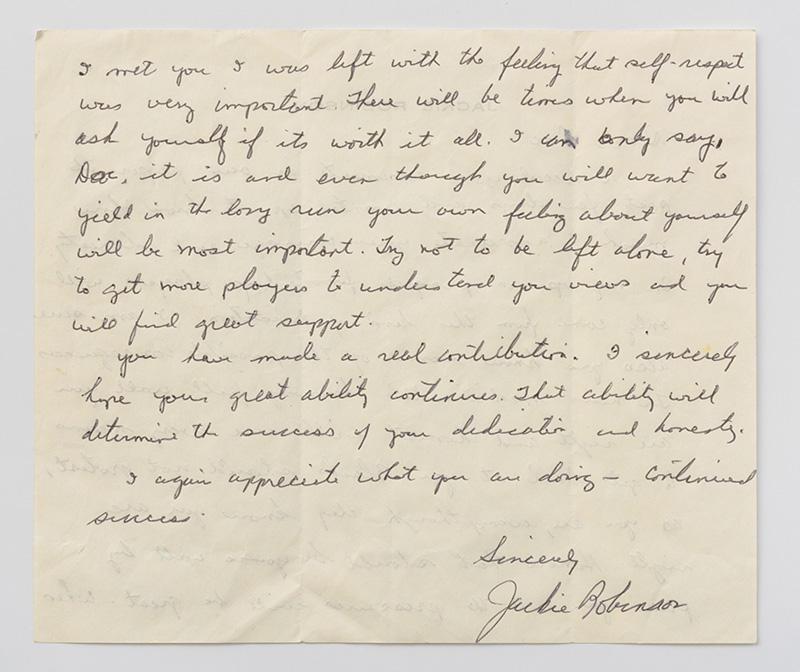 I met you I was left with the feeling that self-respect
was very important There will be times when you will
ask yourself if its worth it all. I can only say,
Dec, it is and even though you will want to
yield in the long run your own feeling about yourself
will be most important. Try not to be left alone, try
to get more players to understand you views and you
will find great support.
you have made a real contribution. I sincerely
hope your great ability continues. That ability will
determine the success of your dedication and honesty.
I again appreciate what you are doing – continued
success.
Sincerely
Jackie Robinson